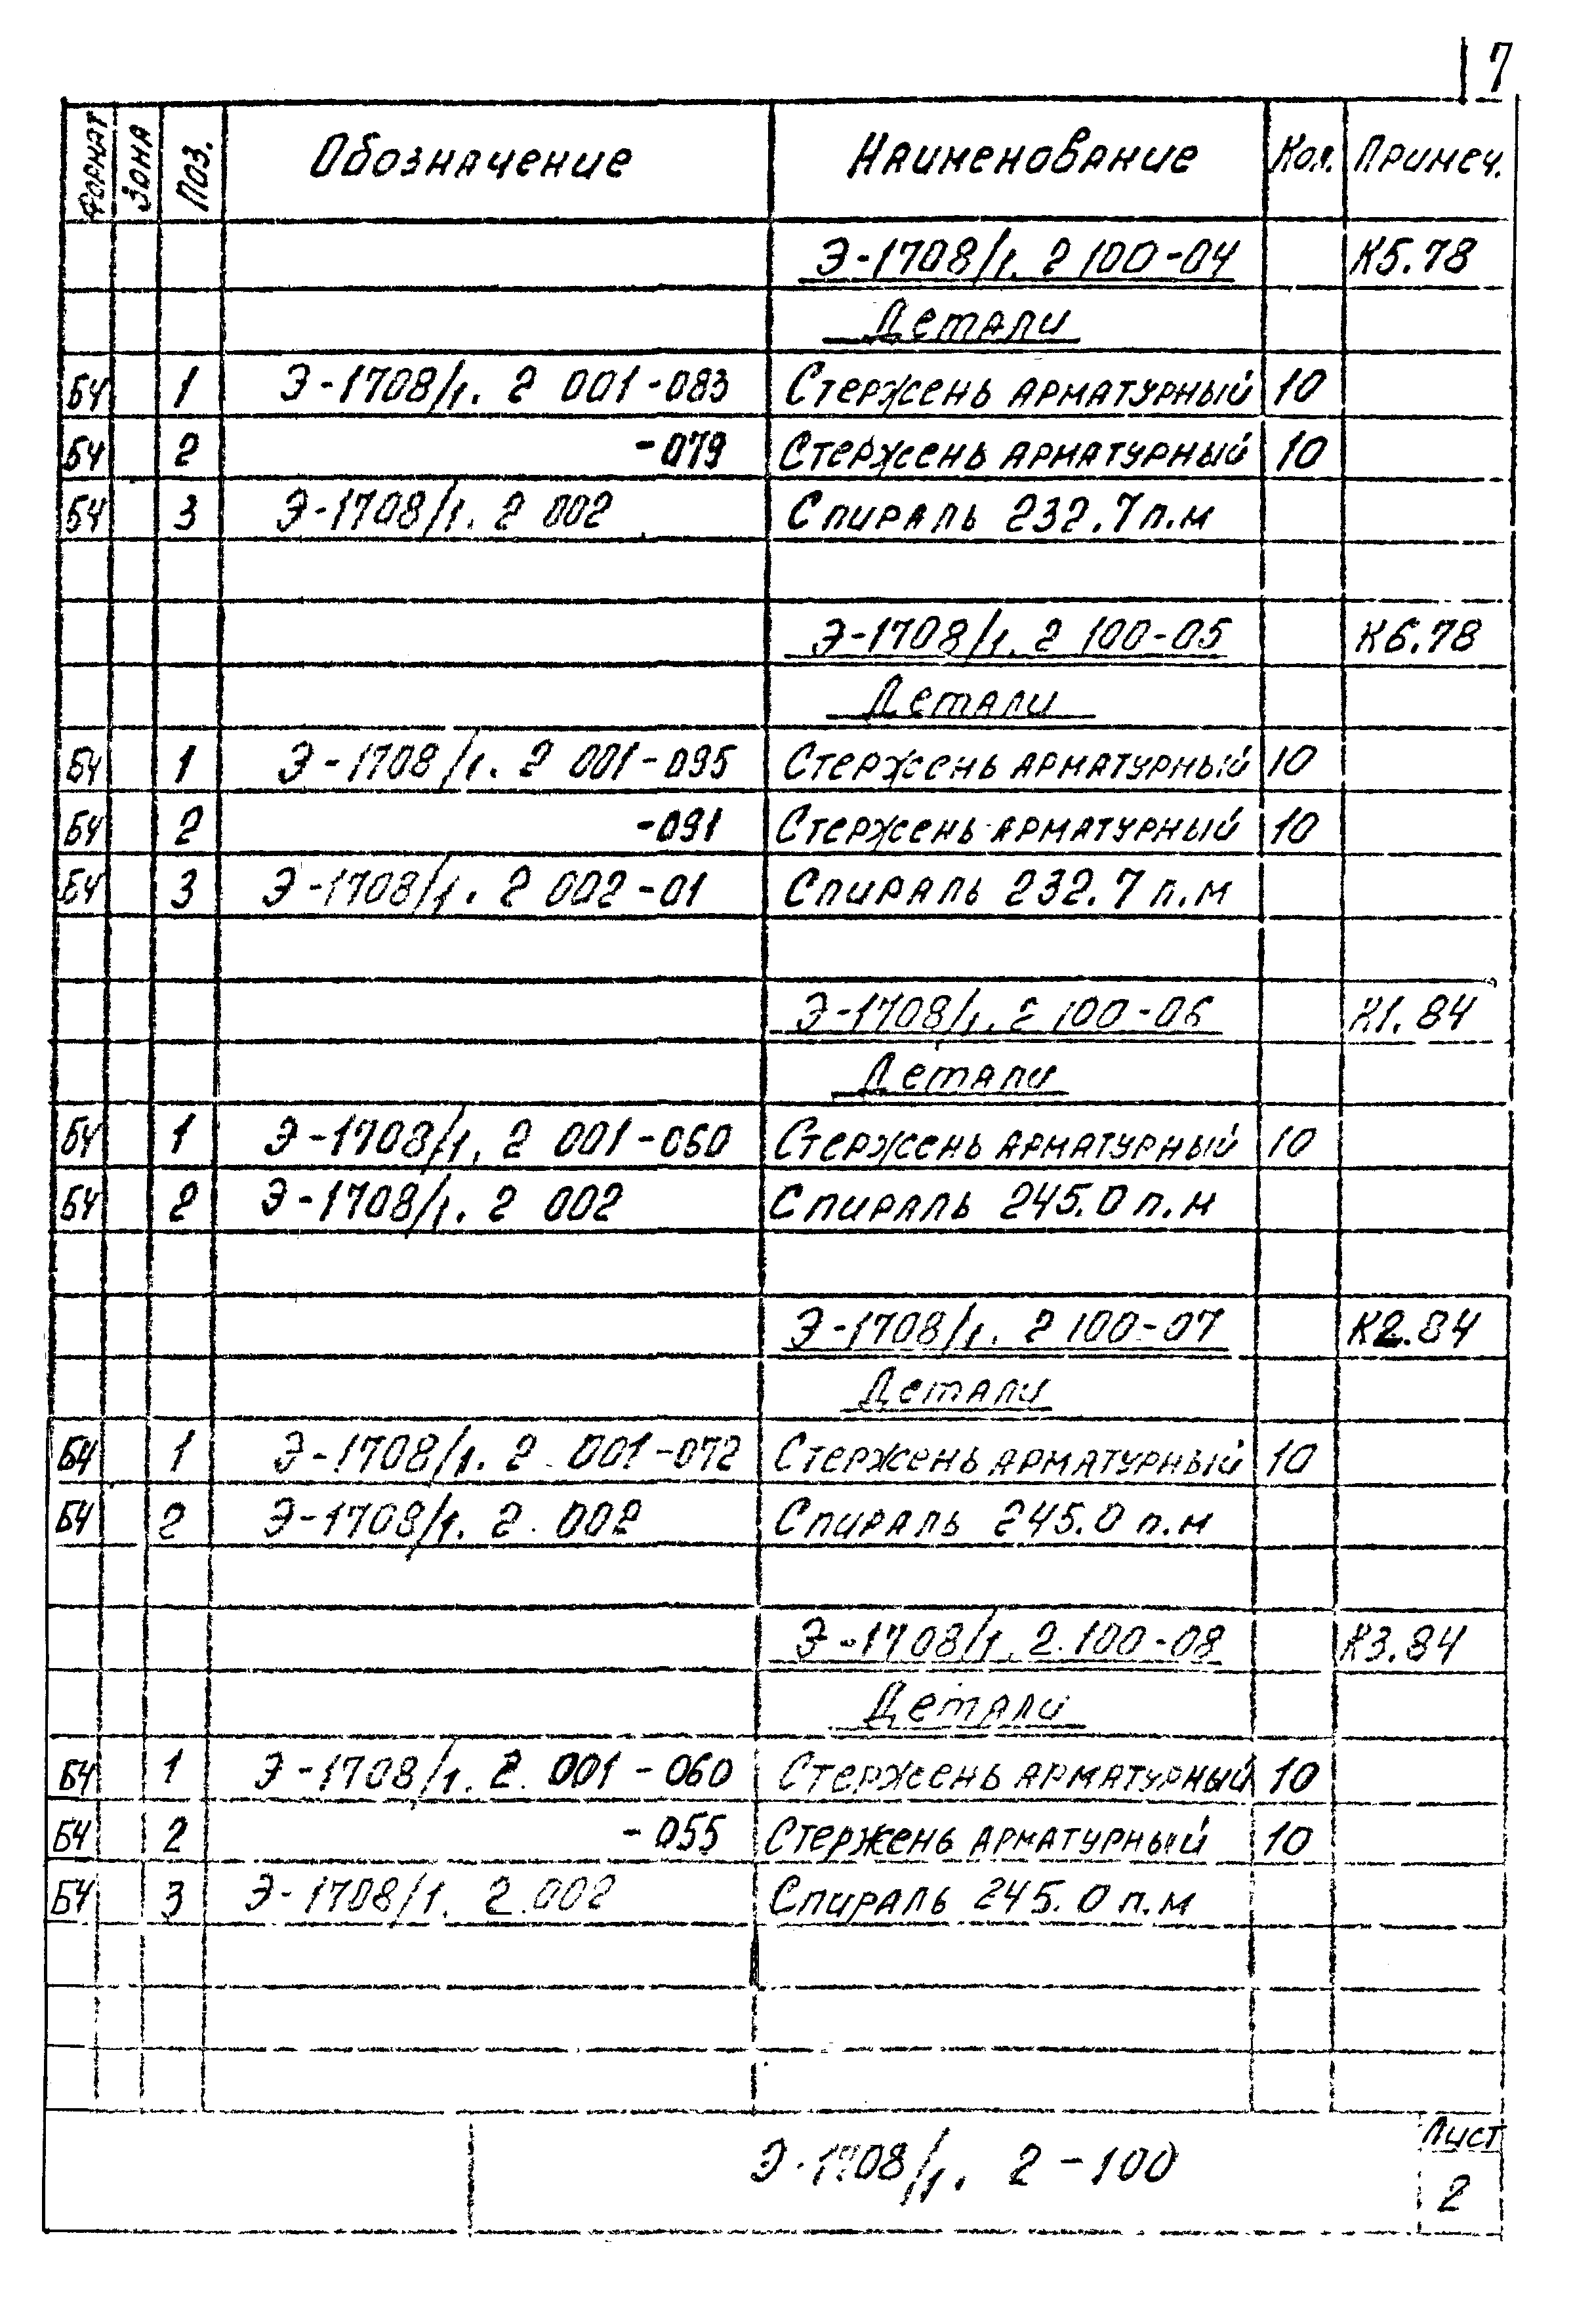 7
Формат Зона Поз. Обозначение Наименование Кол. Примеч.
Э-1708/1. 2 100-04 К5.78
Детали
БЧ 1 Э-1708/1. 2 001-083 Стержень арматурный 10
БЧ 2 -079 Стержень арматурный 10
БЧ 3 Э-1708/1. 2 002 Спираль 232.7 п.м
Э-1708/1. 2 100-05 К6.78
Детали
БЧ 1 Э-1708/1. 2 001-095 Стержень арматурный 10
БЧ 2 -091 Стержень арматурный 10
БЧ 3 Э-1708/1. 2 002-01 Спираль 232.7 п.м
Э-1708/1. 2 100-06 К1.84
Детали
БЧ 1 Э-1708/1. 2 001-060 Стержень арматурный 10
БЧ 2 Э-1708/1. 2 002 Спираль 245.0 п.м
Э-1708/1. 2 100-07 К2.84
Детали
БЧ 1 Э-1708/1. 2. 001-072 Стержень арматурный 10
БЧ 2 Э-1708/1. 2. 002 Спираль 245.0 п.м
Э-1708/1. 2.100-08 К3.84
Детали
БЧ 1 Э-1708/1. 2. 001-060 Стержень арматурный 10
БЧ 2 -055 Стержень арматурный 10
БЧ 3 Э-1708/1. 2.002 Спираль 245.0 п.м
Э-1708/1. 2-100
Лист
2